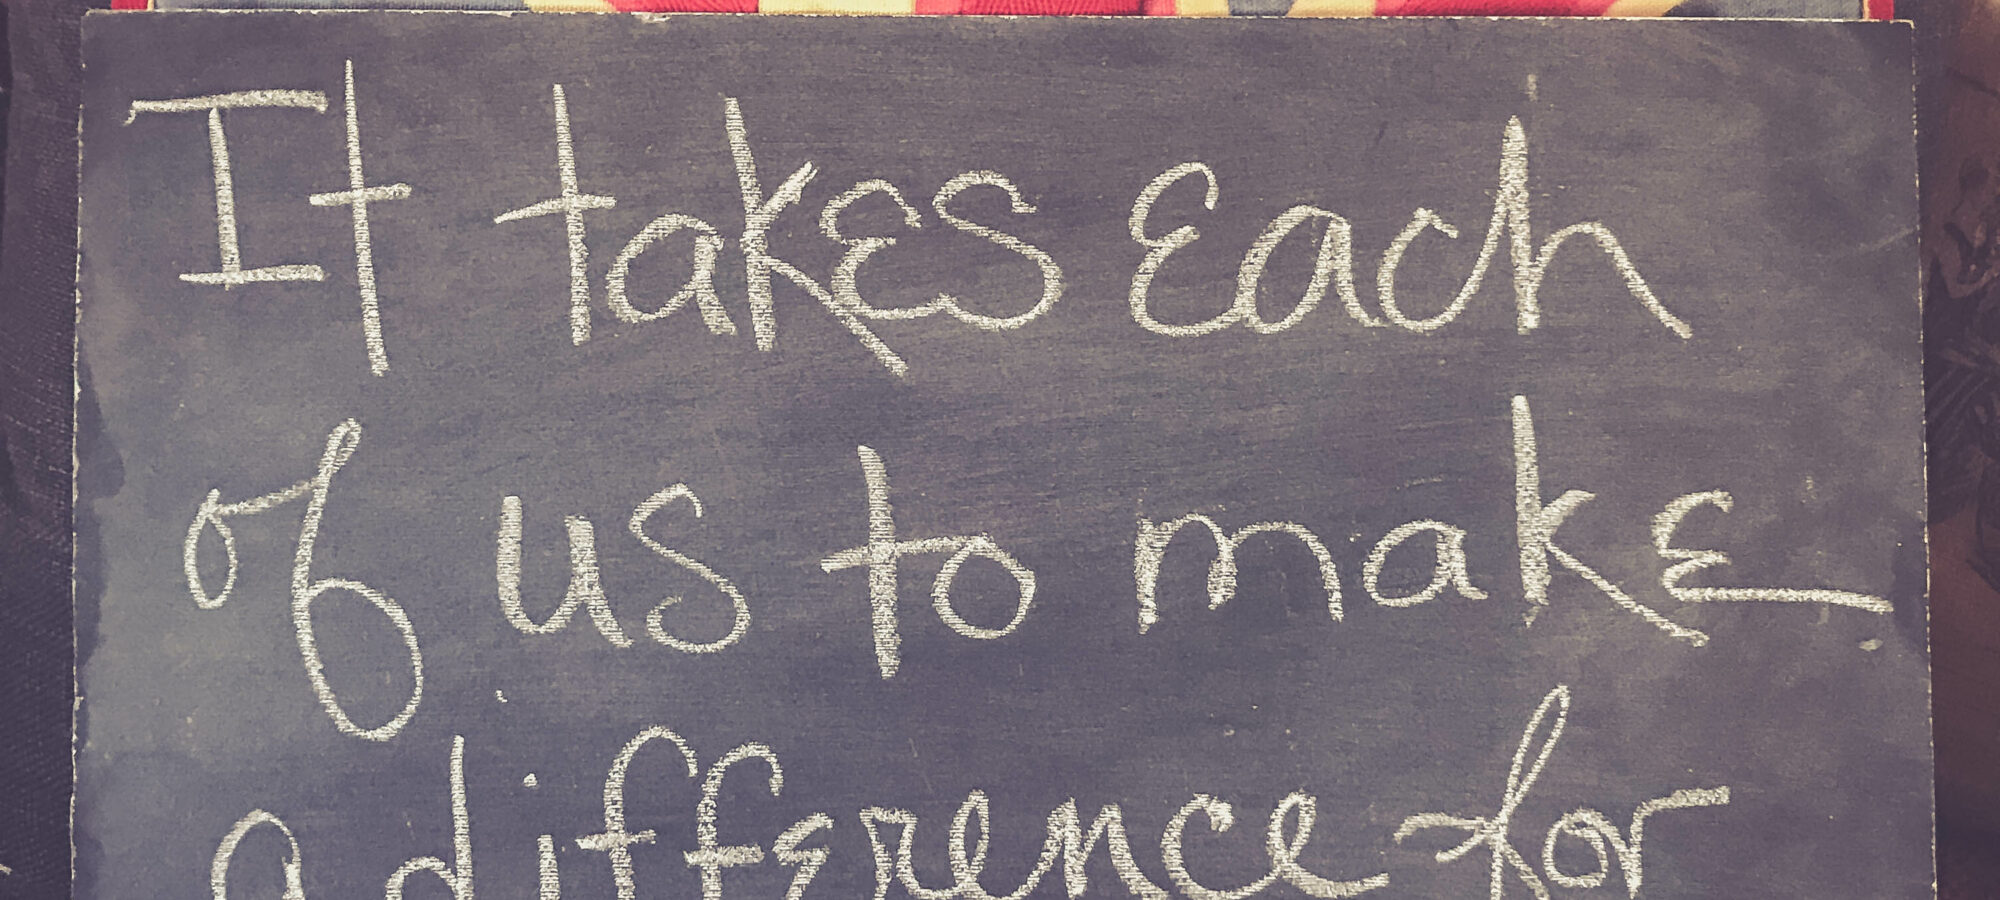 It takes each
of us to make
a difference for